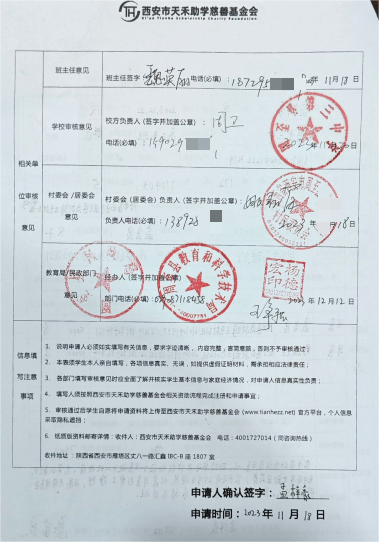 西安市天禾助学慈善基金会
Xi'an Tianhe Scholarship Charity Foundation
班主任意见
班主任签字
电话(必填):187295
11月18日
学校审核意见
校方负责人(签字并加盖公章):
电话(必填):
相关单
位审核
意见
村委会/居委会
意见
村委会(居委会)负责人(签字并加盖公章):
负责人电话(必填):138928
2023年 月18日
教育局/民政部门
意见
经办人(签字并加盖公章):
部门电话(必填):029-87118438
县教育和科学技术局
杨德宏印
2023年12月12日
信息填
写注意
事项
1. 说明申请人必须如实填写有关信息,要求字迹清晰,内容完整,言简意赅,否则不予审核通过;
2. 本表须学生本人亲自填写,各项信息真实、无误,如提供虚假证明材料,需承担相应法律责任;
3. 各部门填写审核意见时应全面了解并核实学生基本信息与家庭经济情况,对申请人信息真实性负责;
4. 填写人须按照西安市天禾助学慈善基金会相关资助流程完成注册和申请事宜;
5. 审核通过后学生自愿将申请资料将上传至西安市天禾助学慈善基金会(www.tianhezz.net)官方平台,个人信息
采取隐私遮挡;
6. 纸质版资料邮寄详情:收件人:西安市天禾助学慈善基金会 电话:4001727014(同咨询热线)
收件地址:陕西省西安市雁塔区丈八一路汇鑫IBC-B座1807室
申请人确认签字:
申请时间:2023年11月18日